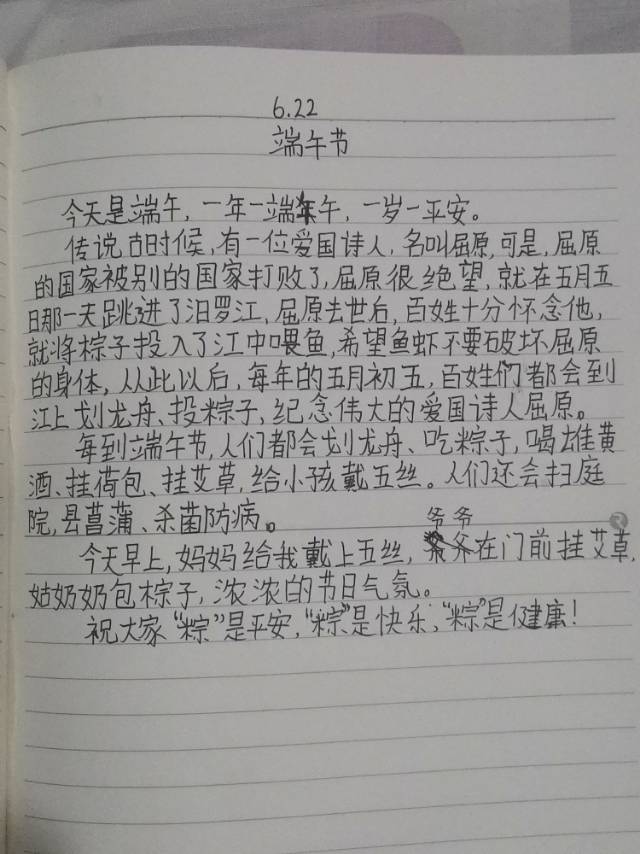 6.22
端午节
今天是端午，一年一端午，一岁一平安。
传说古时候，有一位爱国诗人，名叫屈原，可是，屈原
的国家被别的国家打败了，屈原很绝望，就在五月五
日那一天跳进了汨罗江，屈原去世后，百姓十分怀念他，
就将粽子投入了江中喂鱼，希望鱼虾不要破坏屈原
的身体，从此以后，每年的五月初五，百姓们都会到
江上划龙舟、投粽子、纪念伟大的爱国诗人屈原。
每到端午节，人们都会划龙舟、吃粽子，喝雄黄
酒、挂荷包、挂艾草，给小孩戴五丝。人们还会扫庭
院，县菖蒲、杀菌防病。
今天早上，妈妈给我戴上五丝，爷爷在门前挂艾草，
姑奶奶包粽子，浓浓的节日气氛。
祝大家“粽”是平安，“粽”是快乐，“粽”是健康！